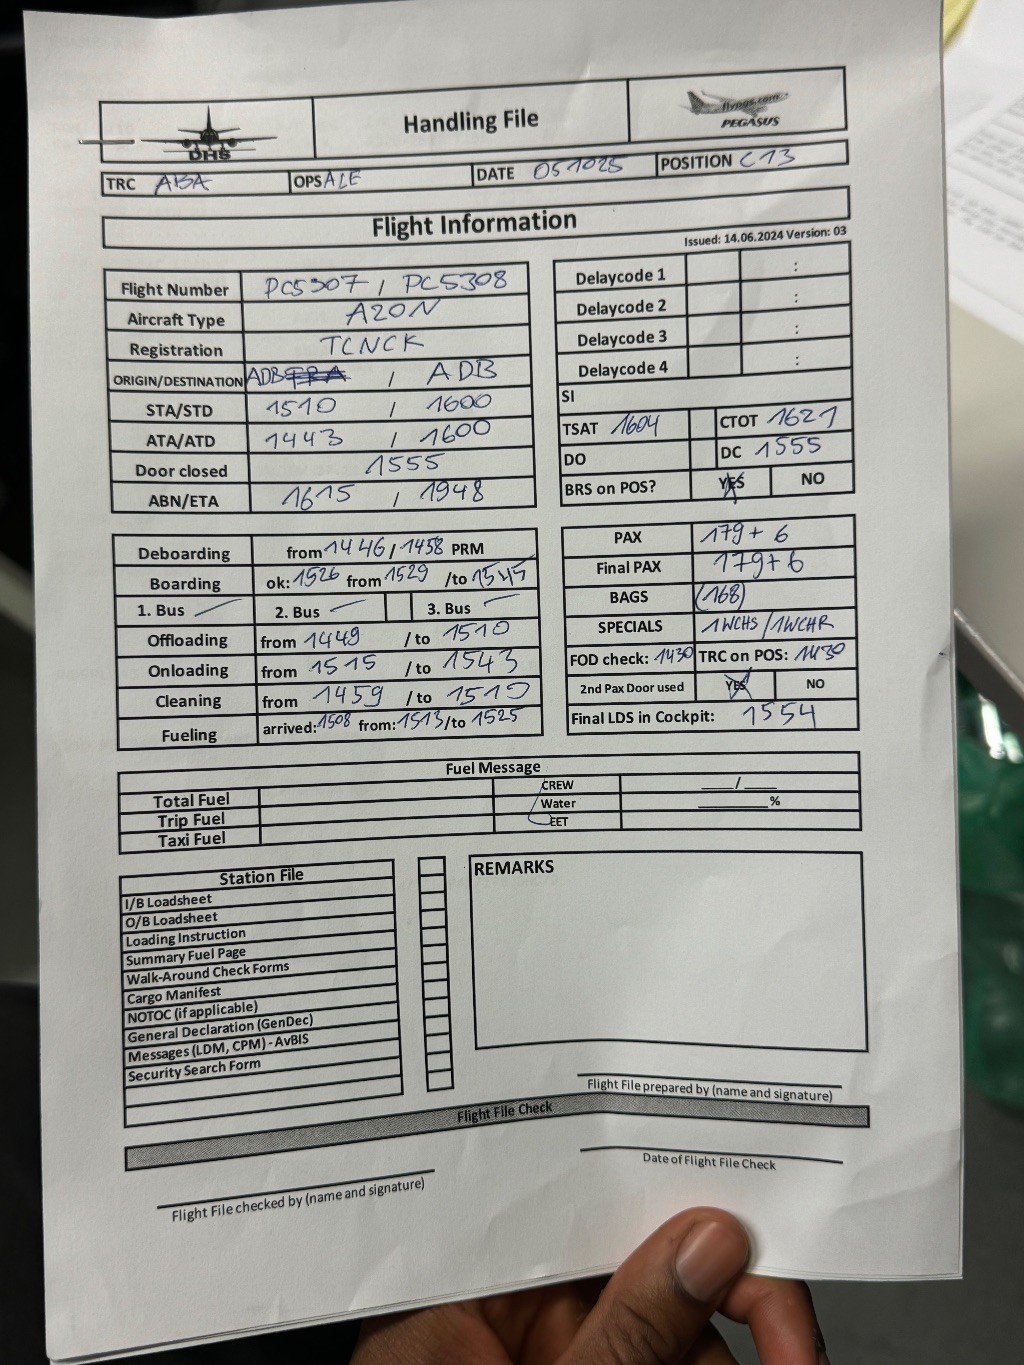 DHS
Handling File
flypgs.com
PEGASUS
TRC ABA
OPS ALE
DATE 051025
POSITION C13
Flight Information
Issued: 14.06.2024 Version: 03
Flight Number PC5307 / PC5308
Aircraft Type A20N
Registration TCNCK
ORIGIN/DESTINATION ADB / ADB
STA/STD 1510 / 1600
ATA/ATD 1443 / 1600
Door closed 1555
ABN/ETA 1615 / 1948
Delaycode 1 :
Delaycode 2 :
Delaycode 3 :
Delaycode 4 :
SI
TSAT 1604 CTOT 1621
DO DC 1555
BRS on POS? YES NO
Deboarding from 1446 / 1458 PRM
Boarding ok: 1526 from 1529 /to 1545
1. Bus 2. Bus 3. Bus
Offloading from 1449 /to 1510
Onloading from 1515 /to 1543
Cleaning from 1459 /to 1510
Fueling arrived: 1508 from: 1513 /to 1525
PAX 179 + 6
Final PAX 179+6
BAGS (168)
SPECIALS 1WCHS / 1WCHR
FOD check: 1430 TRC on POS: 1430
2nd Pax Door used YES NO
Final LDS in Cockpit: 1554
Fuel Message
Total Fuel CREW ____/____
Trip Fuel Water ________%
Taxi Fuel EET
Station File
I/B Loadsheet
O/B Loadsheet
Loading Instruction
Summary Fuel Page
Walk-Around Check Forms
Cargo Manifest
NOTOC (if applicable)
General Declaration (GenDec)
Messages (LDM, CPM) - AvBIS
Security Search Form
REMARKS
Flight File prepared by (name and signature)
Flight File Check
Flight File checked by (name and signature)
Date of Flight File Check